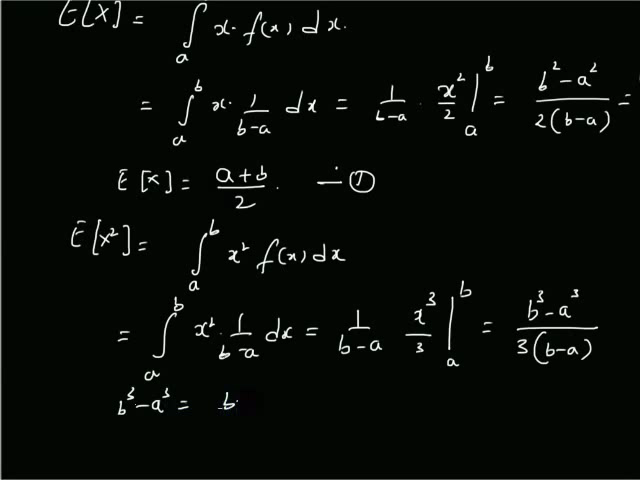 E[X] = ∫ₐ x· f(x) dx.
= ∫ₐᵇ x· 1/(b-a) dx = 1/(b-a) · x²/2 |ₐᵇ = (b² - a²)/(2(b-a)) =
E[X] = (a+b)/2 . — ①
E[X²] = ∫ₐᵇ x² f(x) dx
= ∫ₐᵇ x² · 1/(b-a) dx = 1/(b-a) x³/3 |ₐᵇ = (b³ - a³)/(3(b-a))
b³ - a³ = b